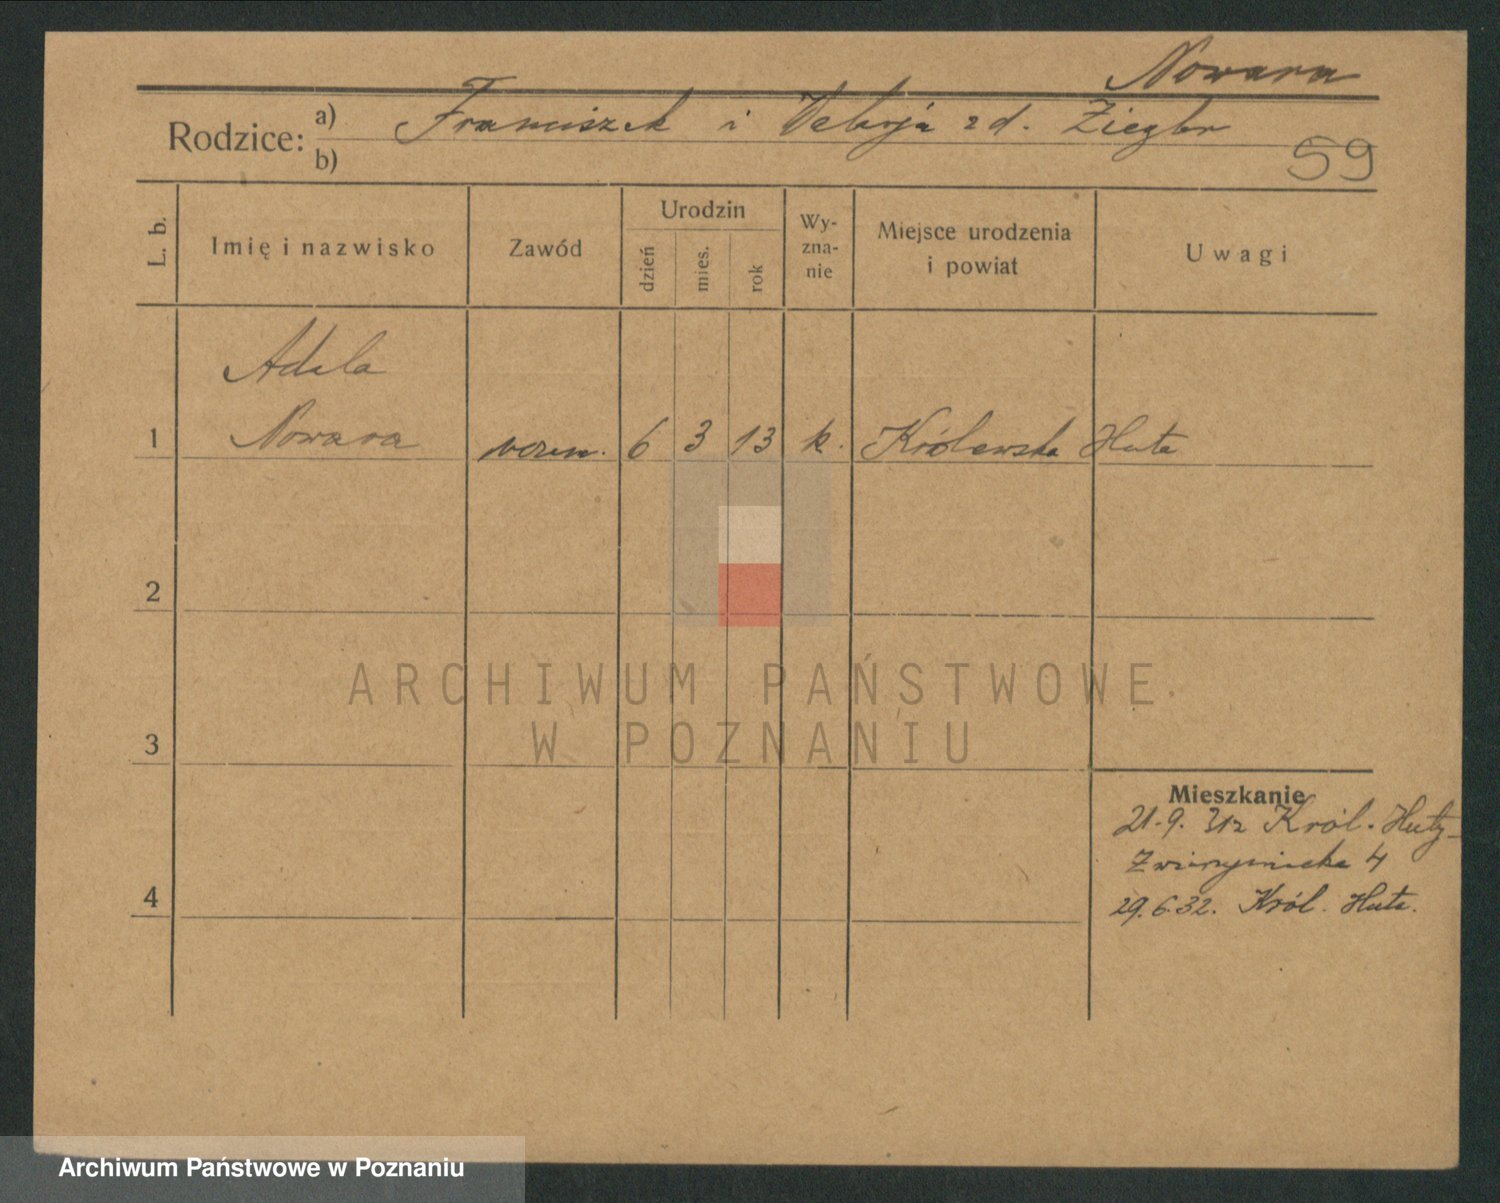 Nowara
Rodzice: a) Franciszek i zd. Ziegler
b)
59
L. b.
Imię i nazwisko
Zawód
Urodzin
dzień
mies.
rok
Wy-
zna-
nie
Miejsce urodzenia
i powiat
Uwagi
Adela
1 Nowara 6 3 13 k. Królewska Huta
2
3
4
Mieszkanie
21.9. Król. Huty
Zwierzyniecka 4
29.6.32. Król. Huta.
ARCHIWUM PAŃSTWOWE
W POZNANIU
Archiwum Państwowe w Poznaniu